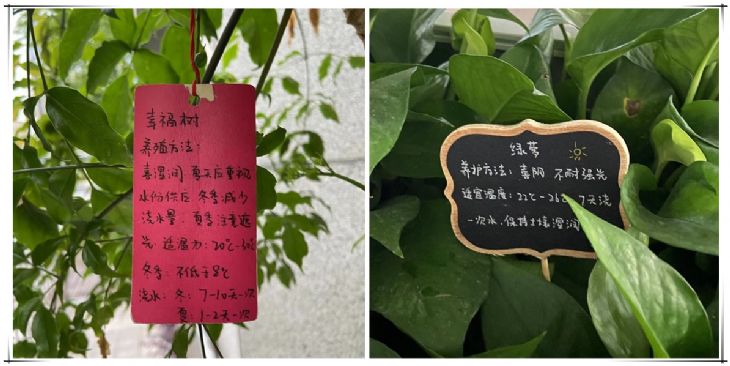 幸福树
养殖方法:
喜湿润 夏天应重视
水份供应 冬季减少
浇水量. 夏季注重遮
光 适温为:20℃-30℃
冬季:不低于8℃
浇水:冬:7-10天一次
夏:1-2天一次
绿萝
养护方法:喜阴 不耐强光
适宜温度:22℃-26℃ 7天浇
一次水,保持土壤湿润